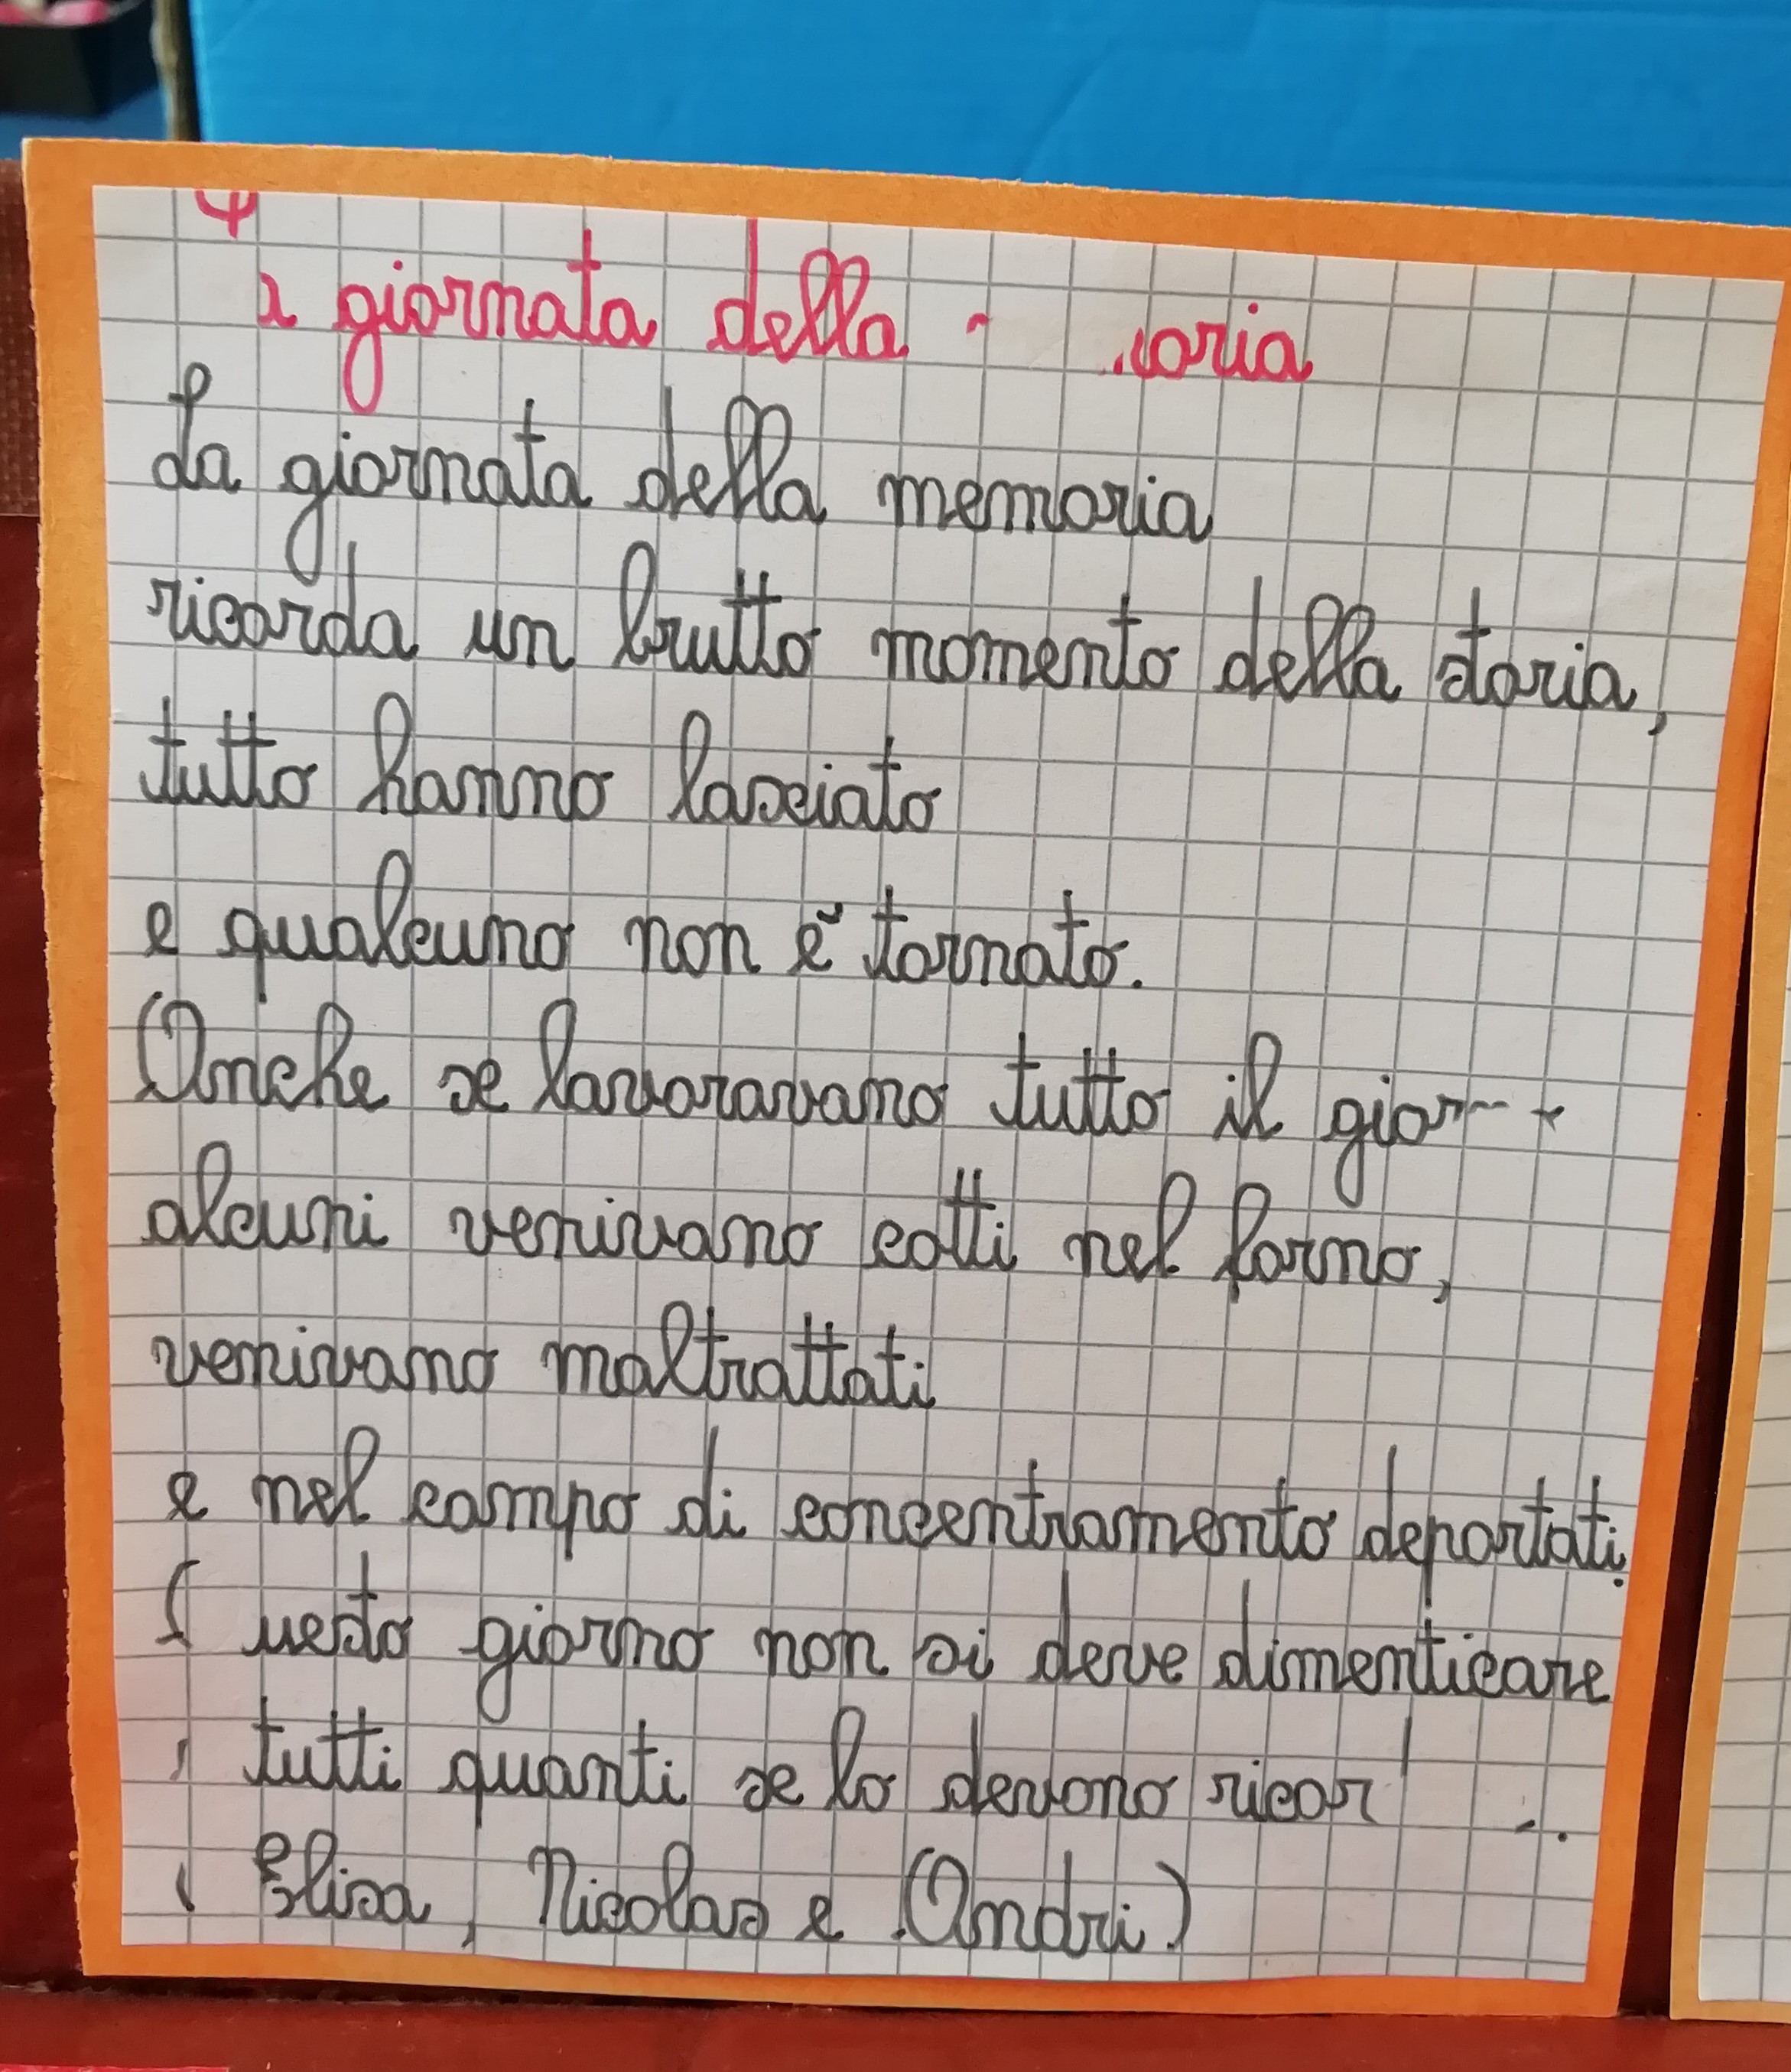 giornata della
La giornata della memoria
ricorda un brutto momento della storia,
tutto hanno lasciato
e qualcuno non è tornato.
Anche se lavoravano tutto il
alcuni venivano cotti nel forno,
venivano maltrattati
e nel campo di concentramento deportati.
giorno non si deve dimenticare
tutti quanti se lo devono
Elisa, Nicolas e Andri)